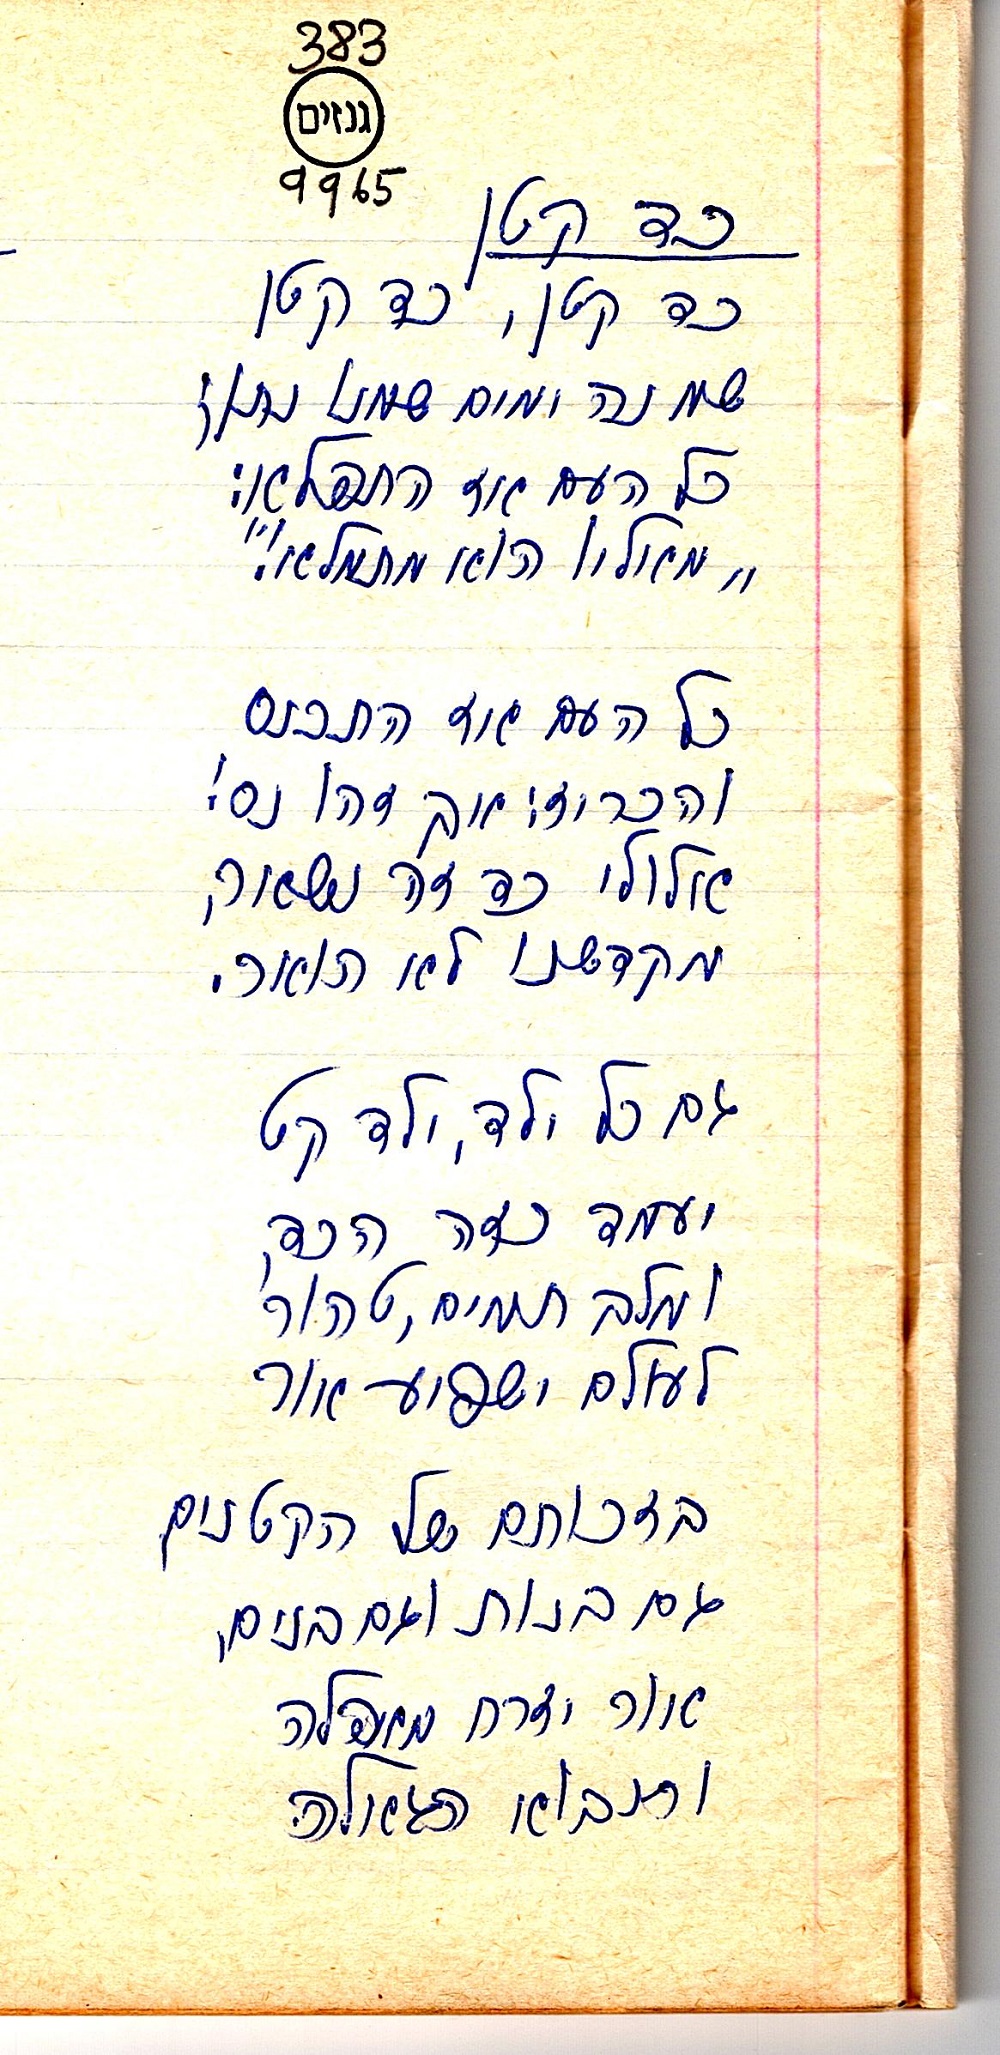 383
גנזים
9965
כד קטן
כד קטן, כד קטן
שמונה ימים שמנו נתן;
כל העם אז התפלא:
"מאליו הוא מתמלא!"
כל העם אז התכנס
והכריז: אך זהו נס!
אלולי כד זה נשאר,
מקדשנו לא הואר.
גם כל ילד, ילד קט
יעמד כזה הכד,
ומלב תמים, טהור
לעולם ישפיע אור
בזכותם של הקטנים,
גם בנות וגם בנים,
אור יזרח מאפלה
ותבוא הגאולה.